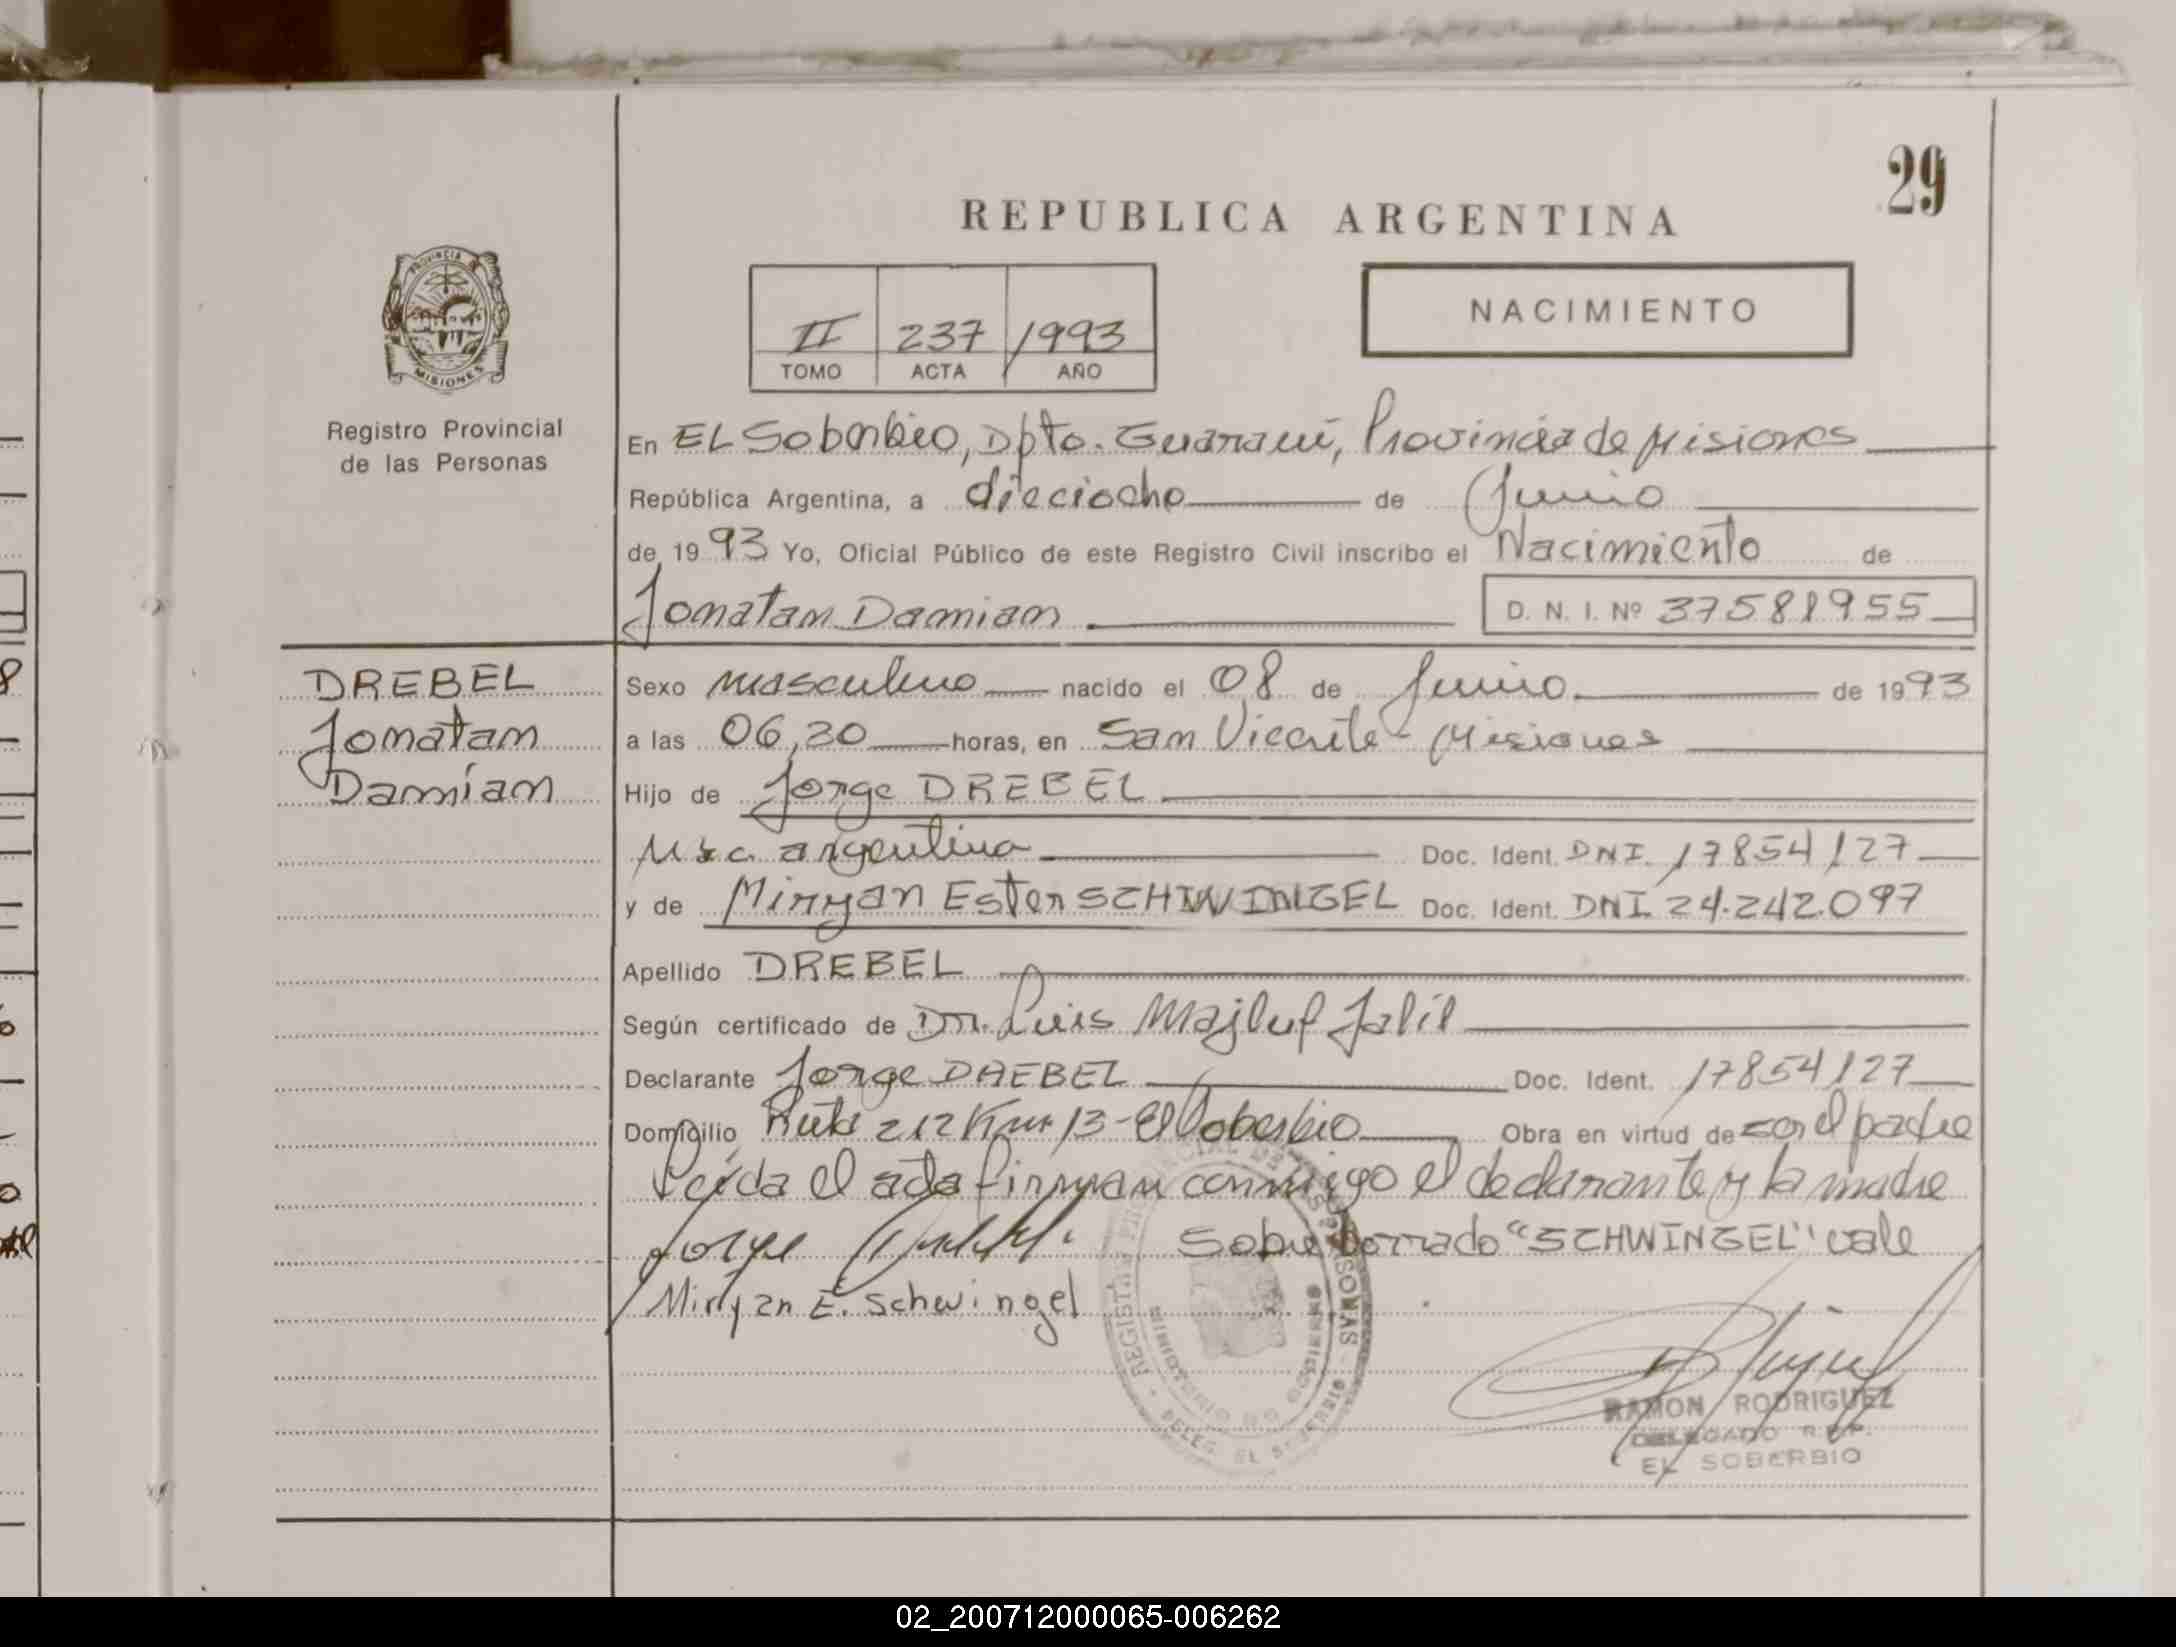 29
REPUBLICA ARGENTINA
PROVINCIA DE
MISIONES
Registro Provincial
de las Personas
II 237 1993
TOMO ACTA AÑO
NACIMIENTO
En EL Soberbio, Dpto. Guaraní, Provincia de Misiones
República Argentina, a dieciocho de Junio
de 1993 Yo, Oficial Público de este Registro Civil inscribo el Nacimiento de
Jonatam Damian D. N. I. Nº 37581955
DREBEL
Jonatam
Damían
Sexo masculino nacido el 08 de Junio de 1993
a las 06,30 horas, en San Vicente - Misiones
Hijo de Jorge DREBEL
argentina Doc. Ident. DNI. 17854127
y de Miryan Ester SCHWINGEL Doc. Ident. DNI. 24.242.097
Apellido DREBEL
Según certificado de Dr. Luis Majluf Jalil
Declarante Jorge DREBEL Doc. Ident. 17854127
Domicilio Ruta 212 Km 13 - El Soberbio Obra en virtud de ser el padre
Leída el acta firman conmigo el declarante y la madre
Jorge Sobre borrado "SCHWINGEL" vale
Miryan E. Schwingel
REGISTRO PROVINCIAL DE LAS PERSONAS
MINISTERIO DE GOBIERNO
DELEG. EL SOBERBIO
RAMON RODRIGUEZ
DELEGADO R.P.P.
EL SOBERBIO
02_200712000065-006262